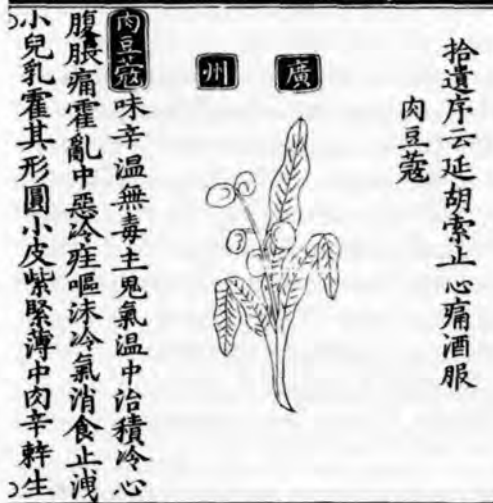 拾遺序云延胡索止心痛酒服
肉豆蔻
廣州
肉豆蔻味辛溫無毒主鬼氣溫中治積冷心
腹脹痛霍亂中惡冷疰嘔沫冷氣消食止洩
小兒乳霍其形圓小皮紫緊薄中肉辛辣生